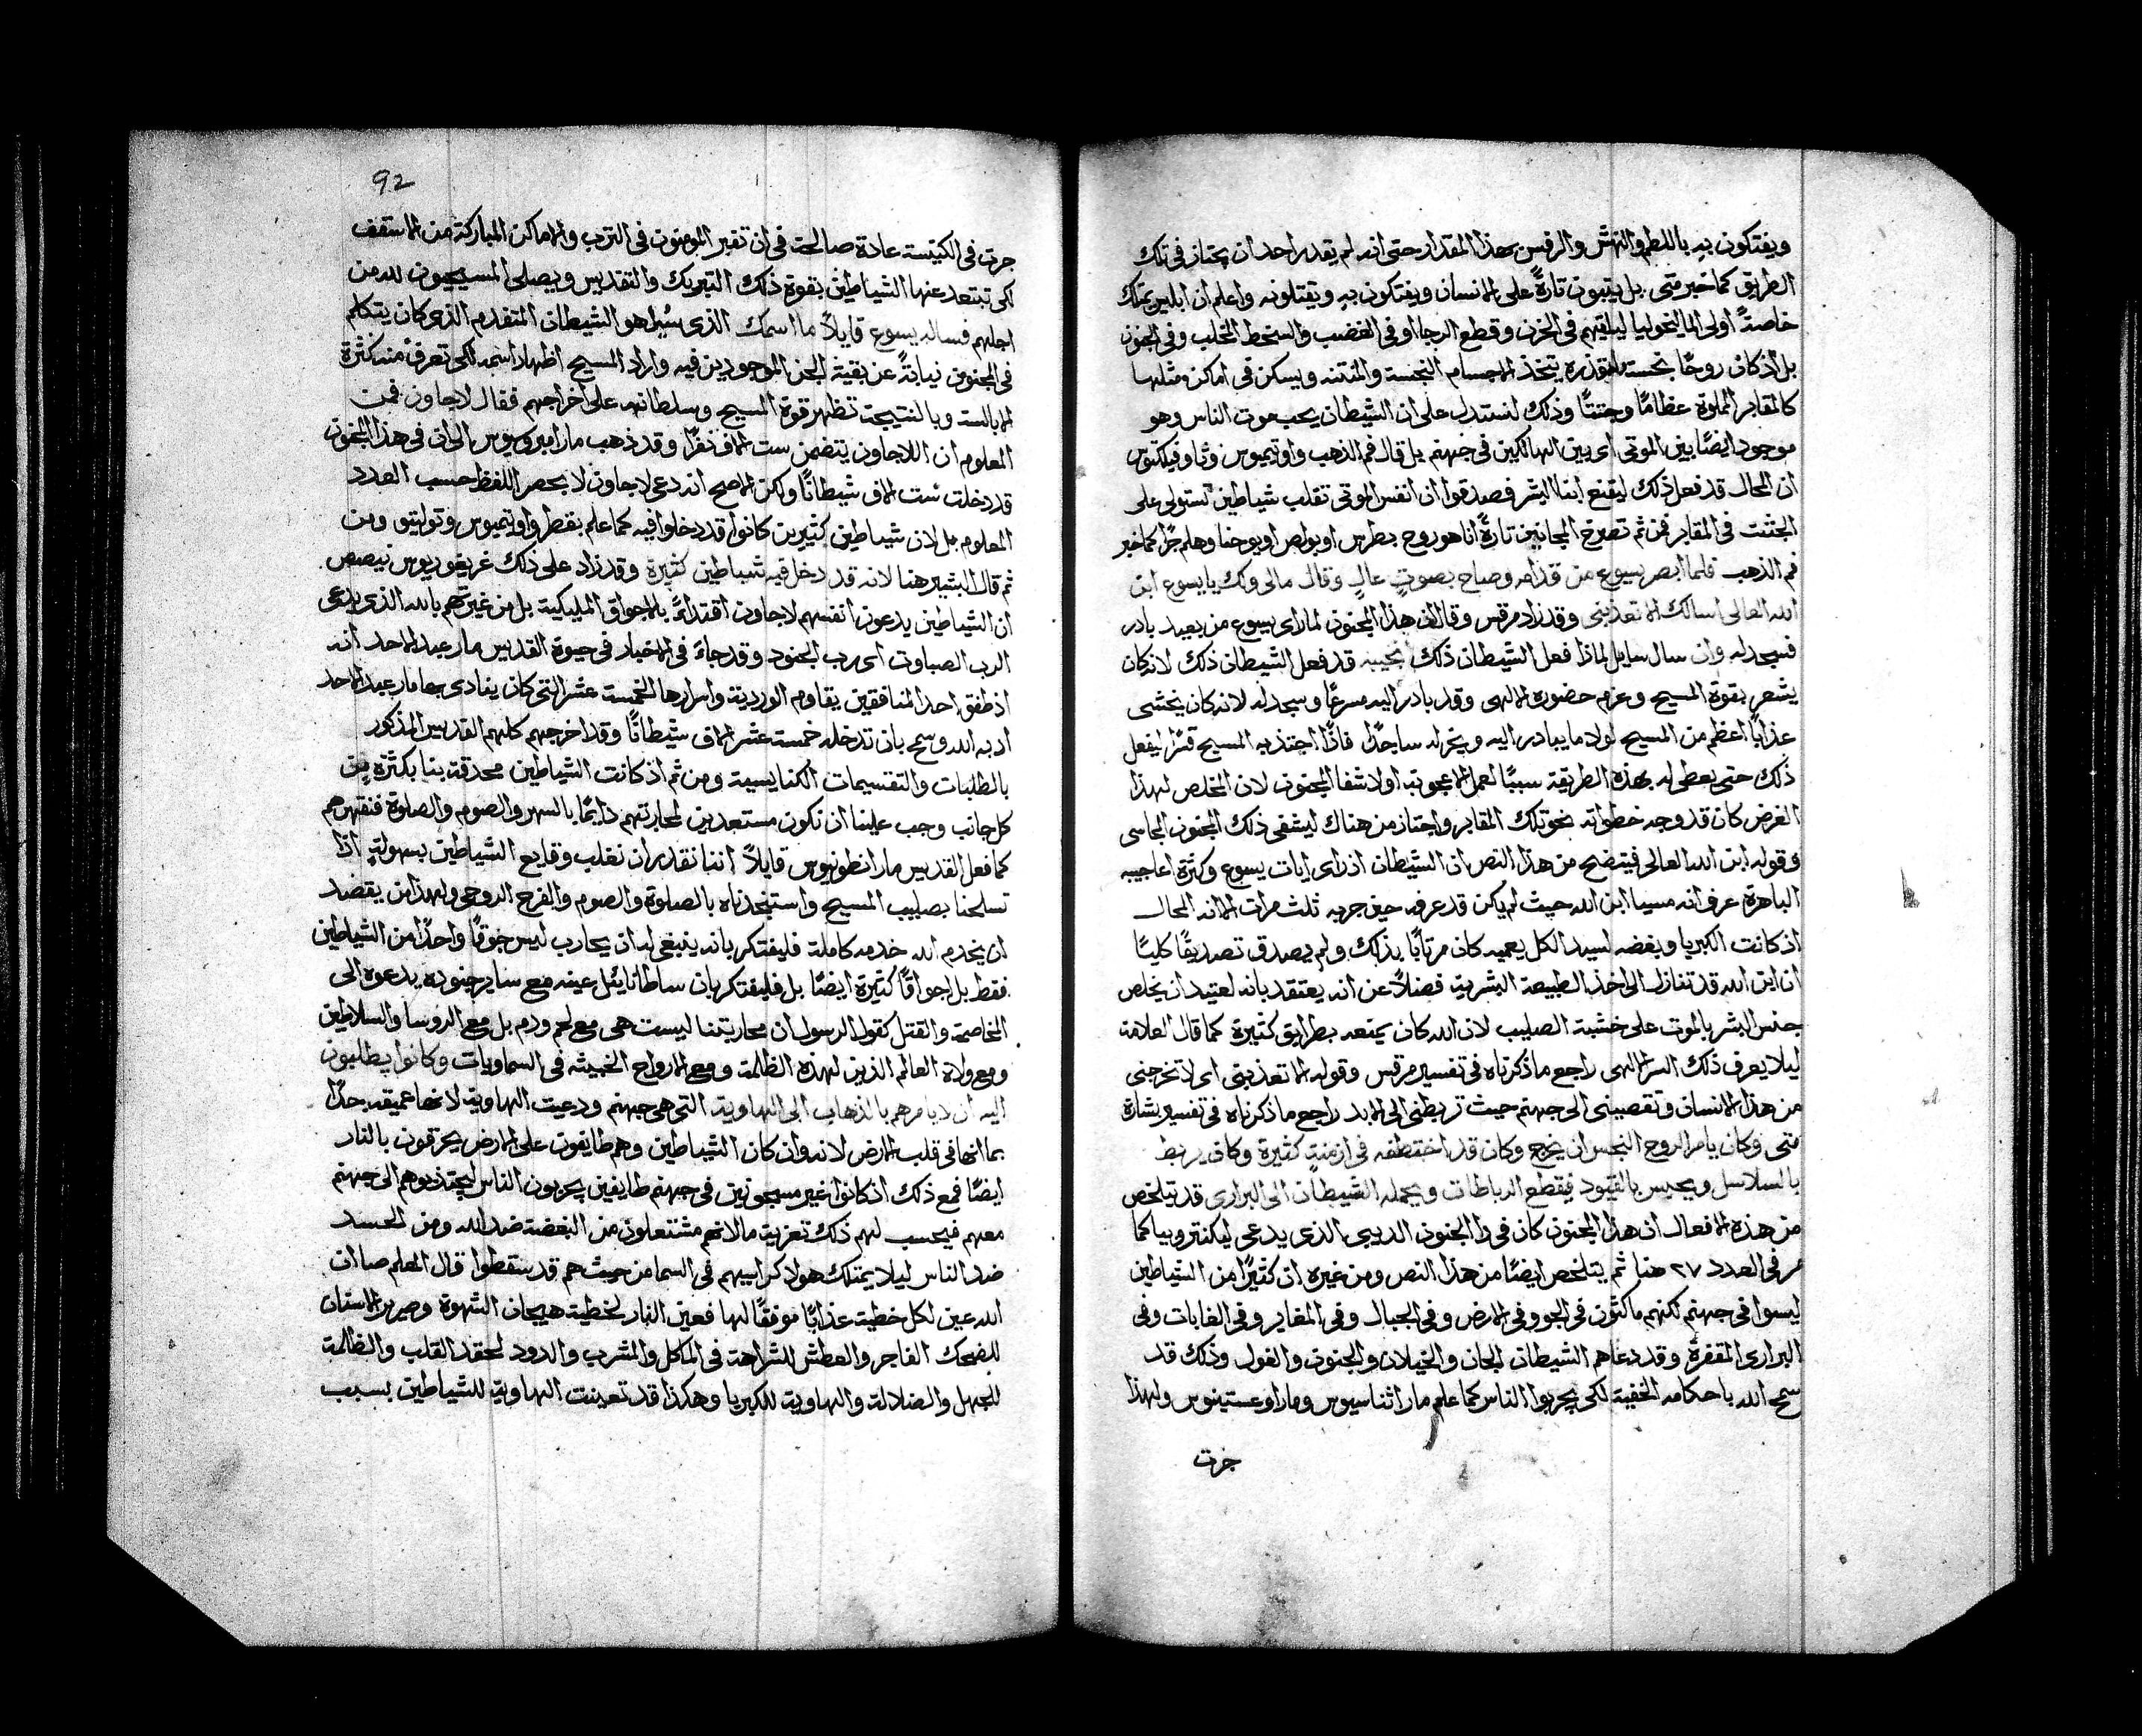 ويفتكون به باللطم والنهش والرفس بهذا المقدار حتى انه لم يقدر احد ان يجتاز في تلك
الطريق كما خبر متى بل يثبون تارةً على الانسان ويفتكون به ويقتلونه واعلم ان ابليس يمتلك
خاصةً اولى الماليخوليا ليلقيهم في الحزن وقطع الرجا او في الغضب والسخط المخلب وفي الجنون
بل اذ كان روحًا نجسة قذره يتخذ الاجسام النجسة والمنتنه ويسكن في اماكن مثلها
كالمقابر المملوة عظامًا وجتتًا وذلك لنستدل على ان الشيطان يحب موت الناس وهو
موجود ايضًا بين الموتى اى بين الهالكين في جهنم بل قال فم الذهب واوتيميوس وثاوفيلكتوس
ان المحال قد فعل ذلك ليقنع ابنا البشر فصدقوا ان انفس الموتى تقلب شياطين تستولى على
الجثث في المقابر فمن ثم تصرخ المجانين تارةً انا هو روح بطرس او بولص او يوحنا وهلم جرًا كما خبر
فم الذهب فلما ابصر يسوع من قدامه وصاح بصوتٍ عالٍ وقال مالى ولك يا يسوع ابن
الله العالى اسالك الا تعذبنى وقد زاد مرقس وقال ان هذا المجنون لما راى يسوع من بعيد بادر
فسجد له وان سال سايل لماذا فعل الشيطان ذلك نجيبه قد فعل الشيطان ذلك لانه كان
يشعر بقوة المسيح وعزم حضوره الالهى وقد بادر اليه مسرعًا وسجد له لانه كان يخشى
عذابًا اعظم من المسيح لولا ما يبادر اليه ويخر له ساجدًا فاذًا اجتذبه المسيح قسرًا ليفعل
ذلك حتى يعطى له بهذه الطريقة سببًا لعمل الاعجوبة اولا شفا المجنون لان المخلص لهذا
الغرض كان قد وجه خطواته نحو تلك المقابر واجتاز من هناك ليشفى ذلك المجنون الجاسى
وقوله ابن الله العالى فيتضح من هذا النص ان الشيطان اذ راى ايات يسوع وكثرة اعاجيبه
الباهرة عرف انه مسيا ابن الله حيث لم يكن قد عرفه حين جربه ثلث مرات الا انه المحال
اذ كانت الكبريا وبغضه لسيد الكل يعميه كان مرتابًا بذلك ولم يصدق تصديقًا كليًا
ان ابن الله قد تنازل الى اخذ الطبيعة البشرية فضلاً عن انه يعتقد بانه لعتيد ان يخلص
جنس البشر بالموت على خشبة الصليب لان الله كان يمنعه بطرايق كثيرة كما قال العلامة
ليلا يعرف ذلك السر الالهى راجع ما ذكرناه في تفسير مرقس وقوله الا تعذبنى اى لا تخرجنى
من هذا الانسان وتقصينى الى جهنم حيث تربطنى الى الابد راجع ما ذكرناه في تفسير بشارة
متى وكان يامر الروح النجس ان يخرج وكان قد اختطفه في ازمنةٍ كثيرة وكان يربط
بالسلاسل ويحبس بالقيود فيقطع الرباطات ويحمله الشيطان الى البرارى قد يتلخص
من هذه الافعال ان هذا المجنون كان في ذا الجنون الديبى الذى يدعى ليكنتروبيا كما
مر في العدد ٢٧ هنا ثم يتلخص ايضًا من هذا النص ومن غيره ان كثيرًا من الشياطين
ليسوا في جهنم لكنهم ماكثون في الجو وفي الارض وفي الجبال وفي المغاير وفي الغابات وفي
البرارى المقفرة وقد دعاهم الشيطان الجان والخيلان والجنون والغول وذلك قد
سمح الله باحكامه الخفية لكى يجربوا الناس كما علم مار اثناسيوس ومار اوغستينوس ولهذا
جرت
92
جرت في الكنيسة عادة صالحة في ان تقبر المومنون في الترب والاماكن المباركة من الاسقف
لكى تبتعد عنها الشياطين بقوة ذلك التبريك والتقديس ويصلى المسيحيون لله من
اجلهم فساله يسوع قايلاً ما اسمك الذى سُيل هو الشيطان المتقدم الذى كان يتكلم
في المجنون نيابةً عن بقية الجن الموجودين فيه واراد المسيح اظهار اسمه لكى تعرف منه كثرة
الابالسة وبالنتيجة تظهر قوة المسيح وسلطانه على اخراجهم فقال لاجاون فمن
المعلوم ان اللاجاون يتضمن ست الاف نفرًا وقد ذهب مار امبروسيوس الى ان في هذا المجنون
قد دخلت ست الاف شيطانًا ولكن الاصح انه دعى لاجاون لا بحصر اللفظ حسب العدد
المعلوم بل لان شياطين كثيرين كانوا قد دخلوا فيه كما علم بقطر واوتيميوس وتوليتى ومن
ثم قال البشير هنا لانه قد دخل فيه شياطين كثيرة وقد زاد على ذلك غريغوريوس نيصص
ان الشياطين يدعون انفسهم لاجاون اقتداءً بالاجواق المليكية بل من غيرتهم بالله الذى يدعى
الرب الصباوت اى رب الجنود وقد جاءَ في الاخبار في حيوة القديس مار عبد الاحد انه
اذ طفق احد المنافقين يقاوم الوردية واسرارها الخمسة عشر التى كان ينادى بها مار عبد الاحد
ادبه الله وسمح بان تدخله خمسة عشر الاف شيطانًا وقد اخرجهم كلهم القديس المذكور
بالطلبات والتقسيمات الكنايسية ومن ثم اذ كانت الشياطين محدقة بنا بكثرة من
كل جانب وجب علينا ان نكون مستعدين لمحاربتهم دايمًا بالسهر والصوم والصلوة فنقهرهم
كما فعل القديس مار انطونيوس قايلاً اننا نقدر ان نغلب وقايع الشياطين بسهولةٍ اذا
تسلحنا بصليب المسيح واستنجدناه بالصلوة والصوم والفرح الروحى ولهذا من يقصد
ان يخدم الله خدمه كاملة فليفتكر بانه ينبغى له ان يحارب ليس جوقًا واحدًا من الشياطين
فقط بل اجواقًا كثيرة ايضًا بل فليفتكر بان ساطانايل عينه مع ساير جنوده يدعوه الى
المخاصمة والقتل كقول الرسول ان محاربتنا ليست هى مع لحم ودم بل مع الروسا والسلاطين
ومع ولاة العالم الذين لهذه الظلمة ومع الارواح الخبيثه في السماويات وكانوا يطلبون
اليه ان لا يامرهم بالذهاب الى الهاوية التى هى جهنم ودعيت الهاوية لانها عميقه جدًا
بما انها في قلب الارض لانه وان كان الشياطين وهم طايفون على الارض يحرقون بالنار
ايضًا فمع ذلك اذ كانوا غير مسجونين في جهنم طايفين يجربون الناس ليجتذبوهم الى جهنم
معهم فيحسب لهم ذلك تعزية ما لانهم مشتعلون من البغضة ضد الله ومن الحسد
ضد الناس ليلا يمتلك هولا كراسيهم في السما من حيث هم قد سقطوا قال المعلم صاان
الله عين لكل خطية عذابًا موفقًا لها فعين النار لخطية هيجان الشهوة وصرير الاسنان
للضحك الفاجر والعطش للشراهة في الماكل والمشرب والدود لحقد القلب والظلمة
للجهل والضلالة والهاوية للكبريا وهكذا قد تعينت الهاوية للشياطين بسبب